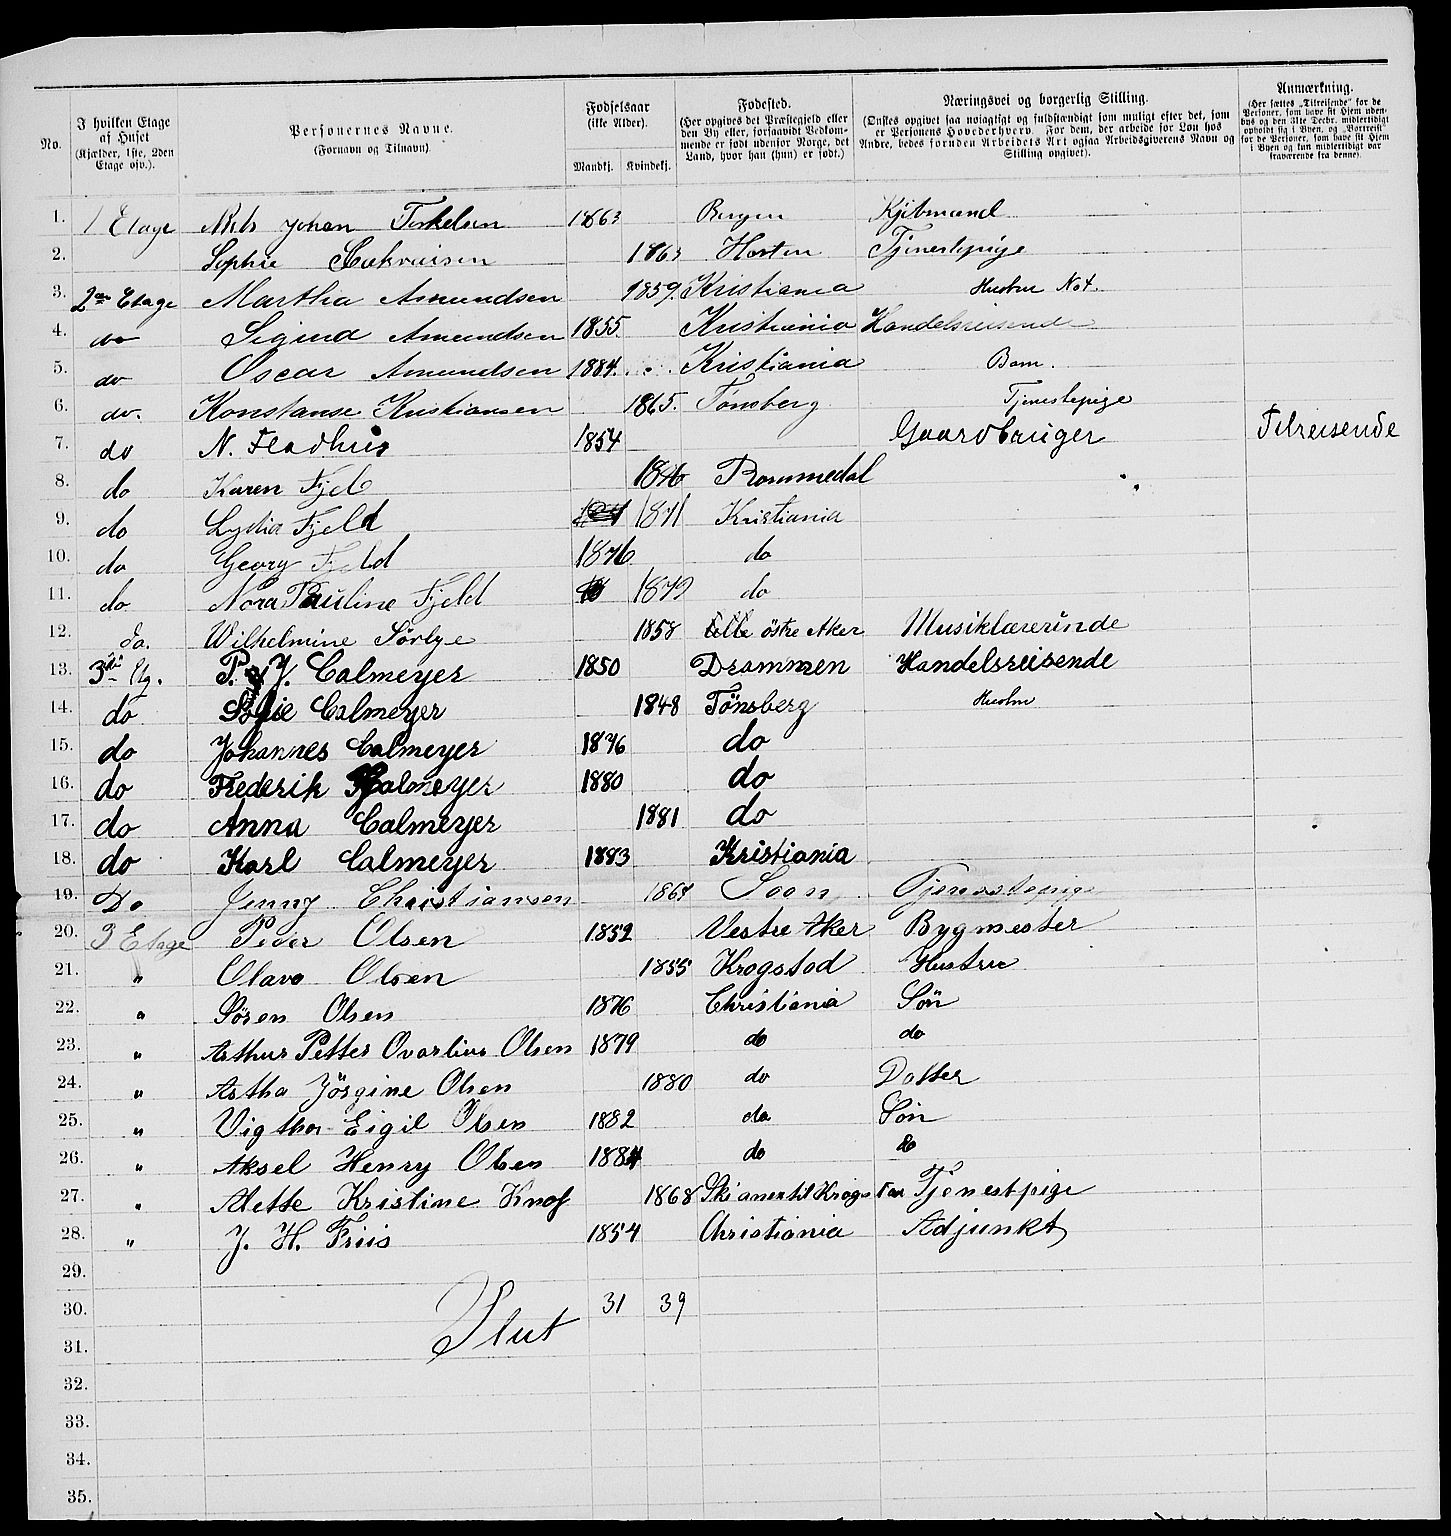 No.
I hvilken Etage af Huset (Kjælder, 1ste, 2den Etage osv.).
Personernes Navne. (Fornavn og Tilnavn)
Fødselsaar (ikke Alder). Mandkj. Kvindekj.
Fødested. (Her opgives det Præstegjeld eller den By eller, forsaavidt Vedkommende er født udenfor Norge, det Land, hvor han (hun) er født.)
Næringsvei og borgerlig Stilling. (Ønskes opgivet saa nøiagtigt og fuldstændigt som muligt efter det, som er Personens Hovederhverv. For dem, der arbeide for Løn hos Andre, bedes foruden Arbeidets Art ogsaa Arbeidsgiverens Navn og Stilling opgivet).
Anmærkning. (Her sættes „Tilreisende" for de Personer, som have sit Hjem udenbys og den 31te Decbr. midlertidigt opholdt sig i Byen, og „Bortreist" for de Personer, som have sit Hjem i Byen og kun midlertidigt var fraværende fra denne).
1. 1 Etage Nils Johan Torkelsen 1863 Bergen Kjöbmand
2. Sophie 1863 Horten Tjenestepige
3. 2den Etage Martha Amundsen 1859. Kristiania Hustru No 4.
4. do Sigurd Amundsen 1855. Kristiania Handelsreisende
5. do Oscar Amundsen 1884. Kristiania Barn.
6. do. Konstanse Kristiansen 1865. Tönsberg Tjenestepige
7. do N. Fladhus 1854 Gaardbruger Tilreisende
8. do Karen Fjeld Rommedal
9. do Lydia Fjeld 1871 Kristiania
10. do Georg Fjeld 1876 do
11. do Nora Pauline Fjeld 1879 do
12. do. Wilhelmine Sörbye 1858 östre Aker Musiklærerinde
13. 3die Etg. P. J. Calmeyer 1850 Drammen Handelsreisende
14. do Sofie Calmeyer 1848 Tönsberg Hustru
15. do Johannes Calmeyer 1876 do
16. do Frederik Calmeyer 1880 do
17. do Anna Calmeyer 1881 do
18. do Karl Calmeyer 1883 Kristiania
19. Do Jenny Christiansen Soon Tjenestepige
20. 3 Etage Peder Olsen 1852 Vestre Aker Bygmester
21. " Olava Olsen 1855 Krogstad Hustru
22. " Sören Olsen 1876 Christiania Sön
23. " Arthur Petter Ovarlius Olsen 1879 do do
24. " Astha Jörgine Olsen 1880 do Datter
25. " Vigthor Eigil Olsen 1882 do Sön
26. " Aksel Henry Olsen 1884 do do
27. " Alette Kristine Knof 1868 Ski anex til Krogstad Tjenestpige
28. " J. H. Friis 1854 Christiania Adjunkt
29.
30. 31 39
Slut
31.
32.
33.
34.
35.